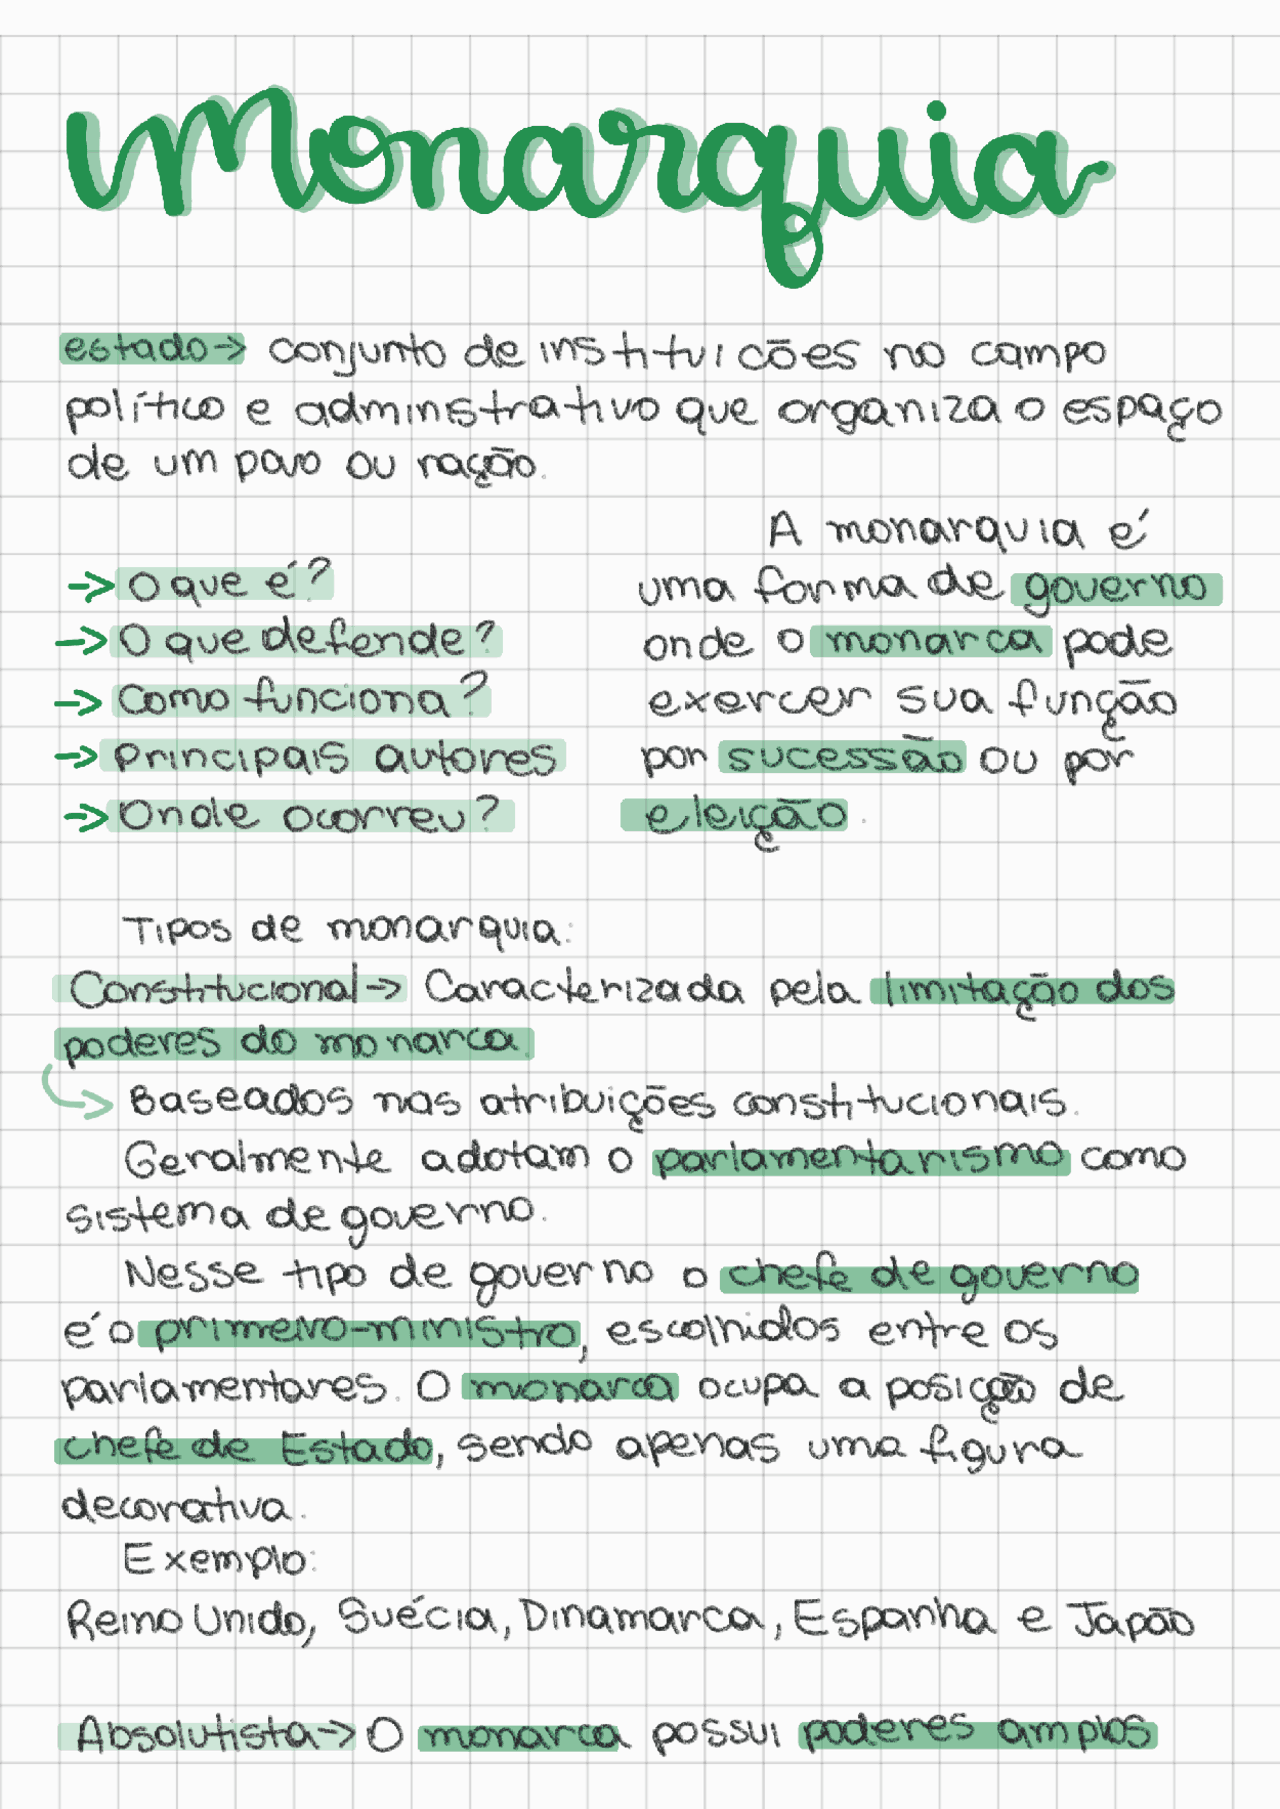 Monarquia
estado→ conjunto de instituicões no campo
político e administrativo que organiza o espaço
de um povo ou nação.
→ O que é?
→ O que defende?
→ Como funciona?
→ Principais autores
→ Onde ocorreu?
A monarquia é
uma forma de governo
onde o monarca pode
exercer sua função
por sucessão ou por
eleição.
Tipos de monarquia:
Constitucional→ Caracterizada pela limitação dos
poderes do monarca.
→ Baseados nas atribuições constitucionais.
Geralmente adotam o parlamentarismo como
sistema de governo.
Nesse tipo de governo o chefe de governo
é o primeiro-ministro, escolhidos entre os
parlamentares. O monarca ocupa a posição de
chefe de Estado, sendo apenas uma figura
decorativa.
Exemplo:
Reino Unido, Suécia, Dinamarca, Espanha e Japão
Absolutista→ O monarca possui poderes amplos